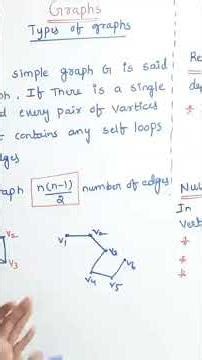 Graphs
Types of graphs
simple graph G is said
ph. If There is a single
d every pair of vartices
t contains any self loops
edges
raph n(n-1)/2 number of edges
V2
V3
V1 V2
V3
V4 V5 V6
Re
de
Nul
In
Vert